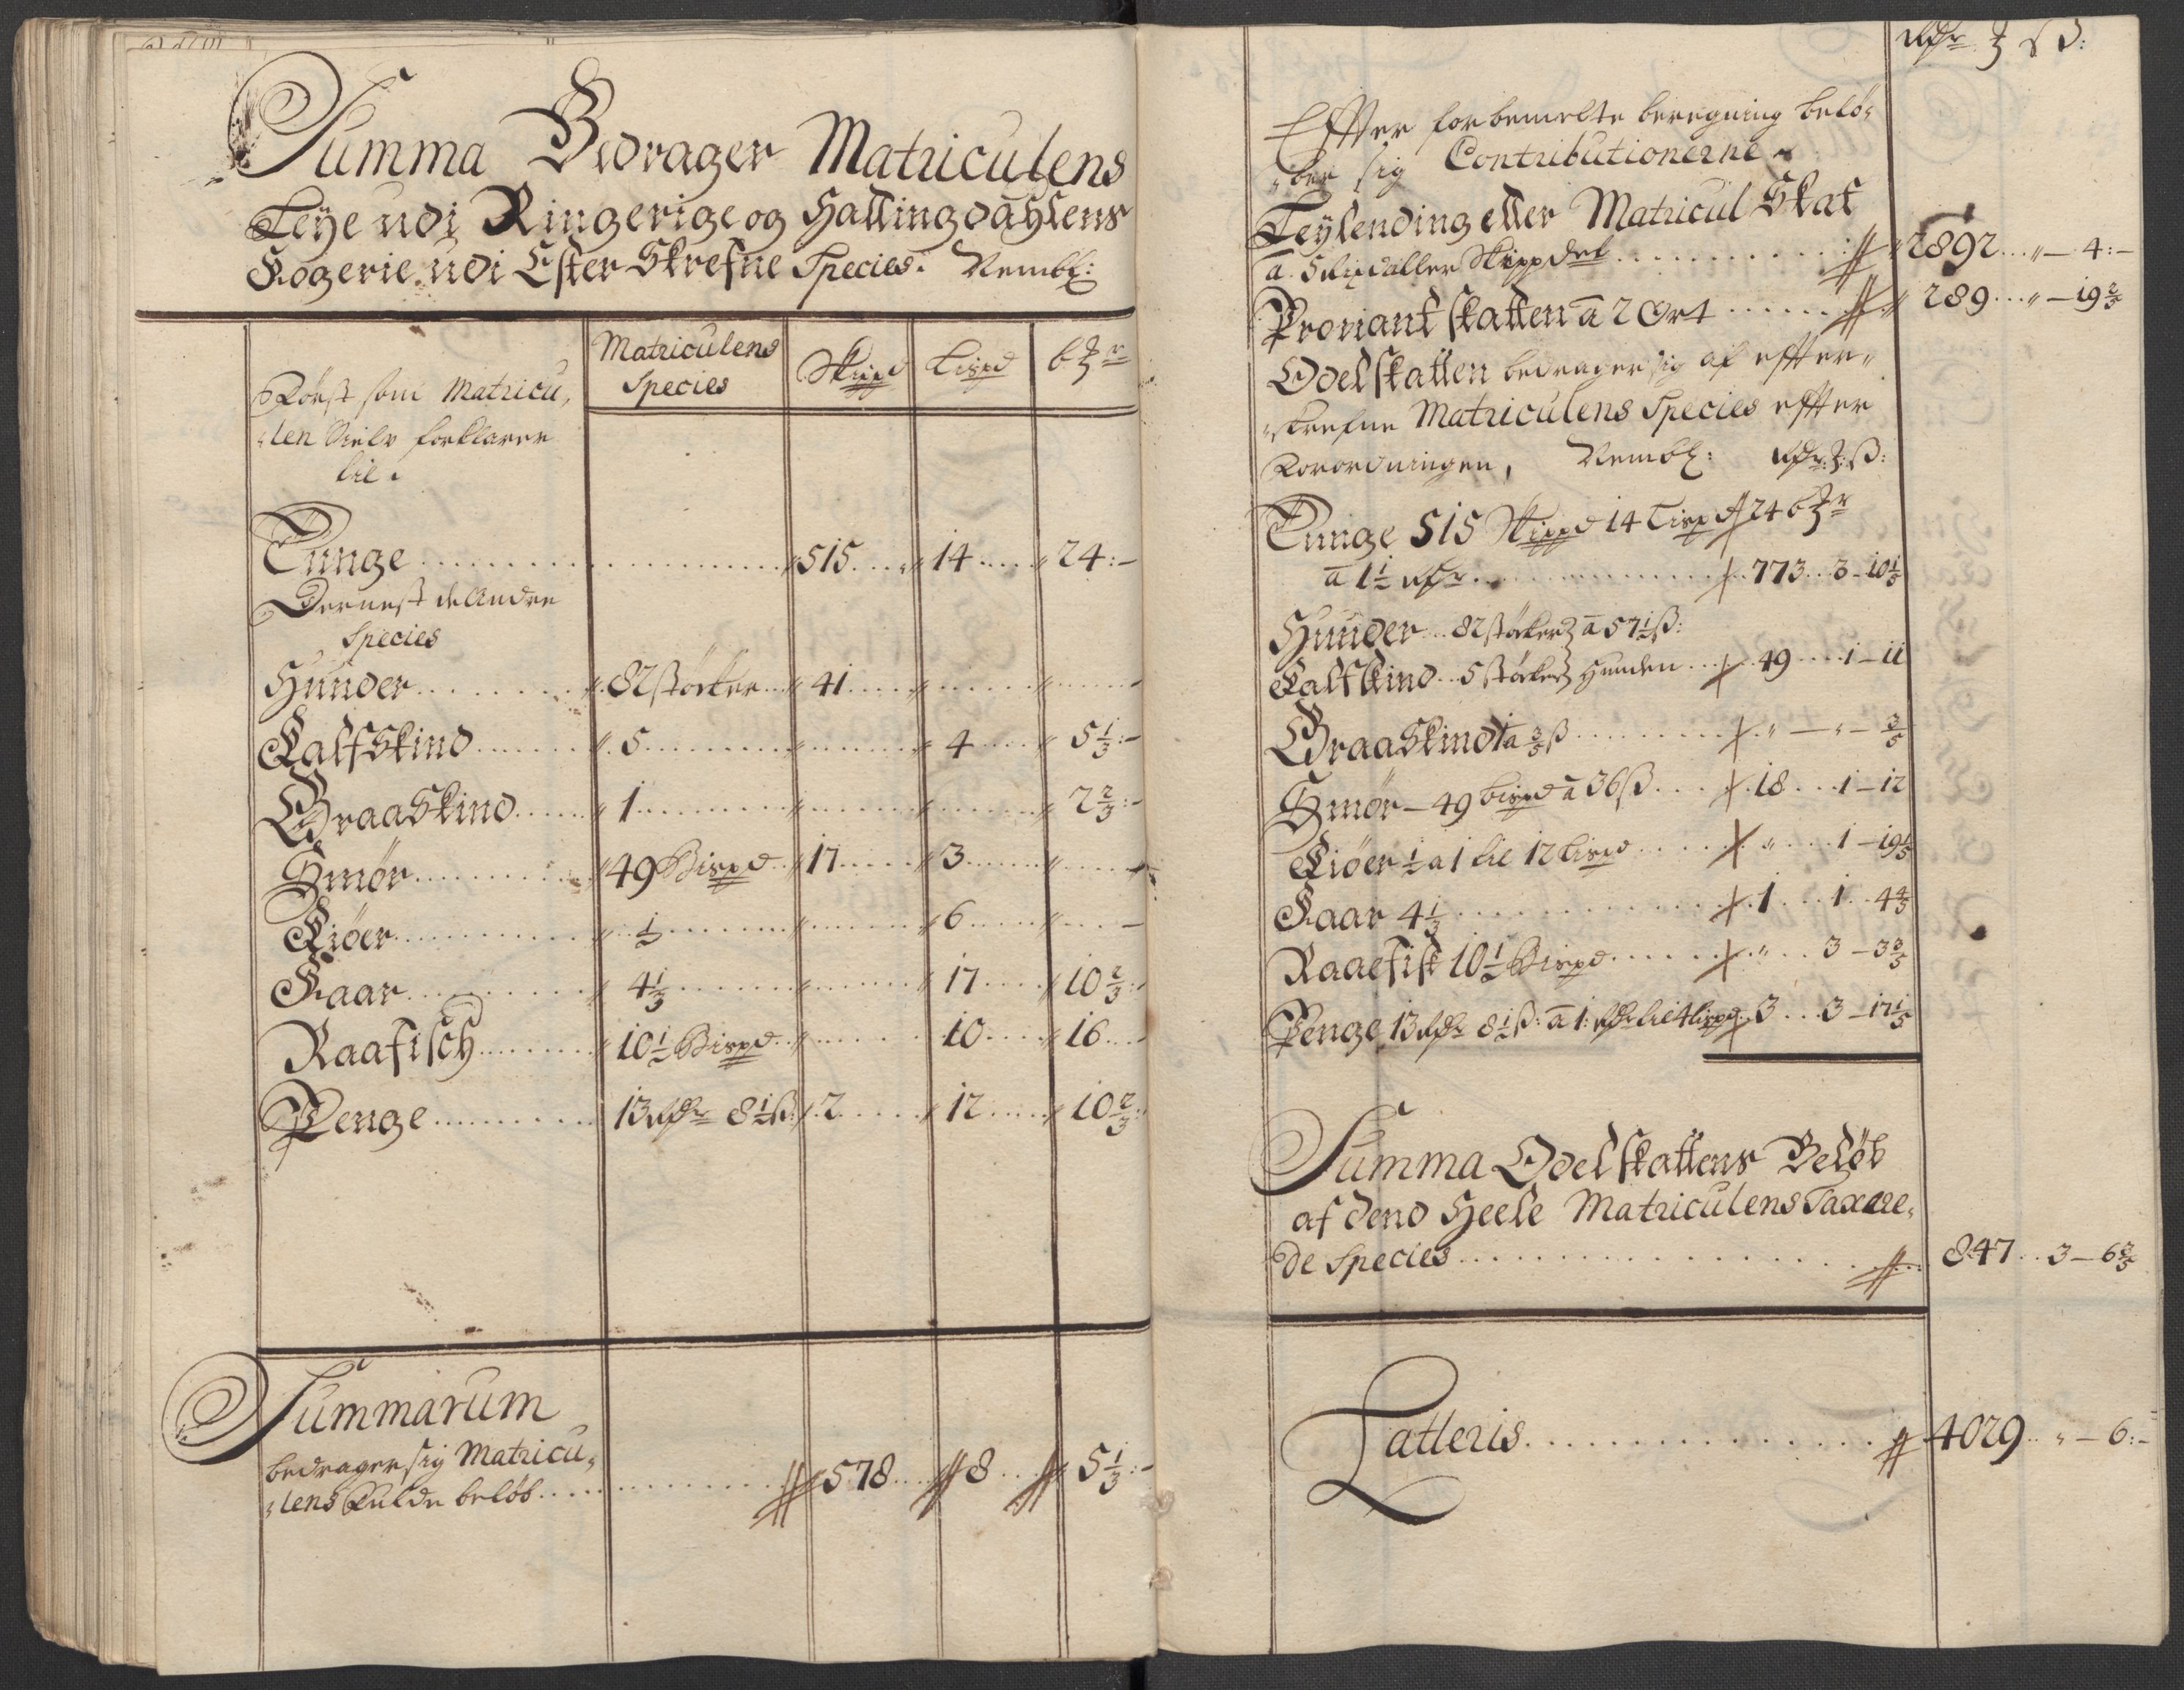 Summa Bedrager Matriculens
Leÿe udi Ringerige og Hallingdahlens
Fogerie udi Efter Skrefne Species. Nembl:
Matriculens Species
Skipd
Lispd
bZr
Først som Matricu,
,len Sielv forklarer
til.
Tunge 515 14 24:-
Dernest de Andre
Species
Hunder 82 støcker 41
Kalfskind 5 4 5 1/3:-
Graaskind 1 2 2/3:-
Smør 49 Bispd 17 3
Kiøer 1/2 6
Faar 4 1/3 17 10 2/3:-
Raafisch 10 1/2 Bispd 10 16
Penge 13 Rdr 8 1/2 ß: 2 12 10 2/3:
Summarum
bedrager sig Matricu,
,lens Fulde beløb 578 8 5 1/3:-
Rdr Z ß:
Effter forbemelte beregning belø,
,ber sig Contributionerne
Leÿlending eller Matricul Skat
a. 5 Rixdaller Skippdet 2892 „ – 4:–
Proviant skatten a 2 Ort 289 „ – 19 2/5
Odelskatten bedrager sig af effter,,
,skrefne Matriculens Species effter
Forordningen, Nembl: Rdr: Z: ß:
Tunge 515 Skippd 14 Lispd 24 bZr
a 1 1/2 Rdr 773 3-10 1/5
Hunder 82 støcker a 57 1/2 ß:
Kalfskind 5 støcker Hunden 49 1-11
Graaskind 1 a 3/5 ß „ – „ – 3/5
Smør – 49 bispd a 36 ß 18 1-12
Kiøer 1/2 a 1 til 12 Lispd „ 1-19 1/5
Faar 4 1/3 1 1 4 4/5
Raaefisk 10 1/2 Bispd „ 3-3 3/5
Penge 13 Rdr 8 1/2 ß: a 1: Rdr til 4 lispd 3 3-17 1/5
Summa Odelskattens Beløb
af dend Heele Matriculens Taxere,
de Species 847 3-6 3/5
Latteris 4029 „ – 6:-